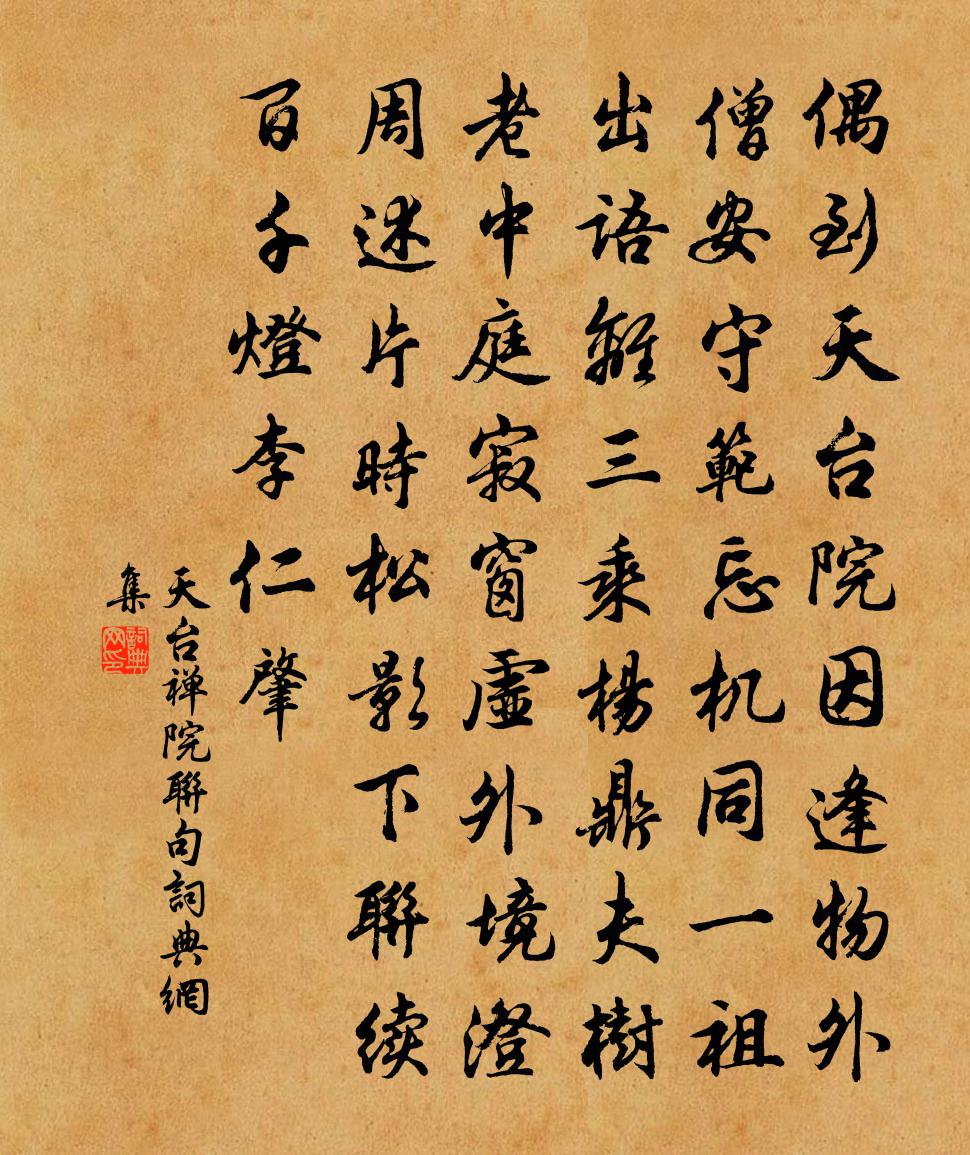 偶到天台院因逢物外
僧安守範忘机同一祖
出語離三乘楊鼎夫樹
老中庭寂窗虛外境澄
周述片時松影下聯续
百千燈李仁肇
天台禅院聯句詞典網
集
詞典網印